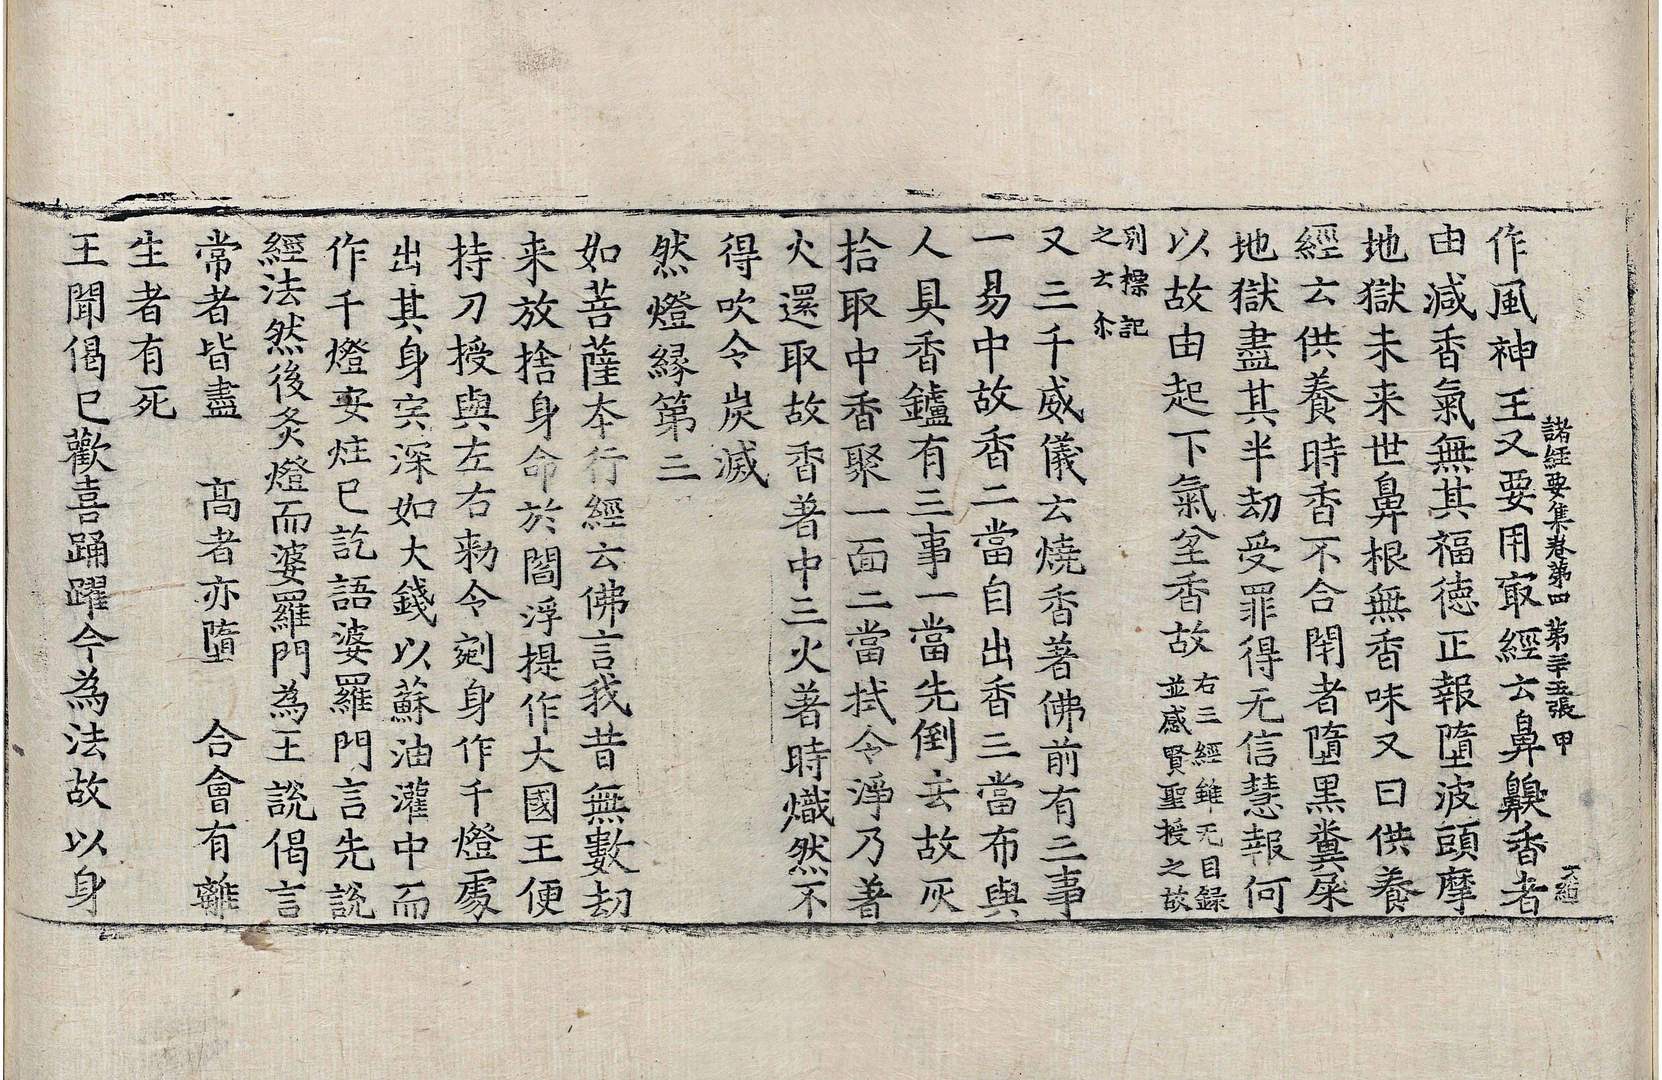 諸經要集卷第四 第二十五張 甲
作風神王又要用㝡經云鼻齅香者
由減香氣無其福徳正報墮波頭摩
地獄未来世鼻根無香味又曰供養
經云供養時香不合閇者墮黒糞屎
地獄盡其半劫受罪得无信慧報何
以故由起下氣坌香故 右三經雖无目錄
並感賢聖授之故
別標記
之云尒
又三千威儀云燒香著佛前有三事
一易中故香二當自出香三當布與
人具香鑪有三事一當先倒去故灰
拾取中香聚一面二當拭令淨乃著
火還取故香著中三火著時熾然不
得吹令炭滅
然燈縁第三
如菩薩本行經云佛言我昔無數劫
来放捨身命於閻浮提作大國王便
持刀授與左右勑令剜身作千燈處
出其身宍深如大錢以蘇油灌中而
作千燈安炷已訖語婆羅門言先説
經法然後炙燈而婆羅門為王説偈言
常者皆盡 髙者亦墮 合會有離
生者有死
王聞偈已歡喜踊躍今為法故以身